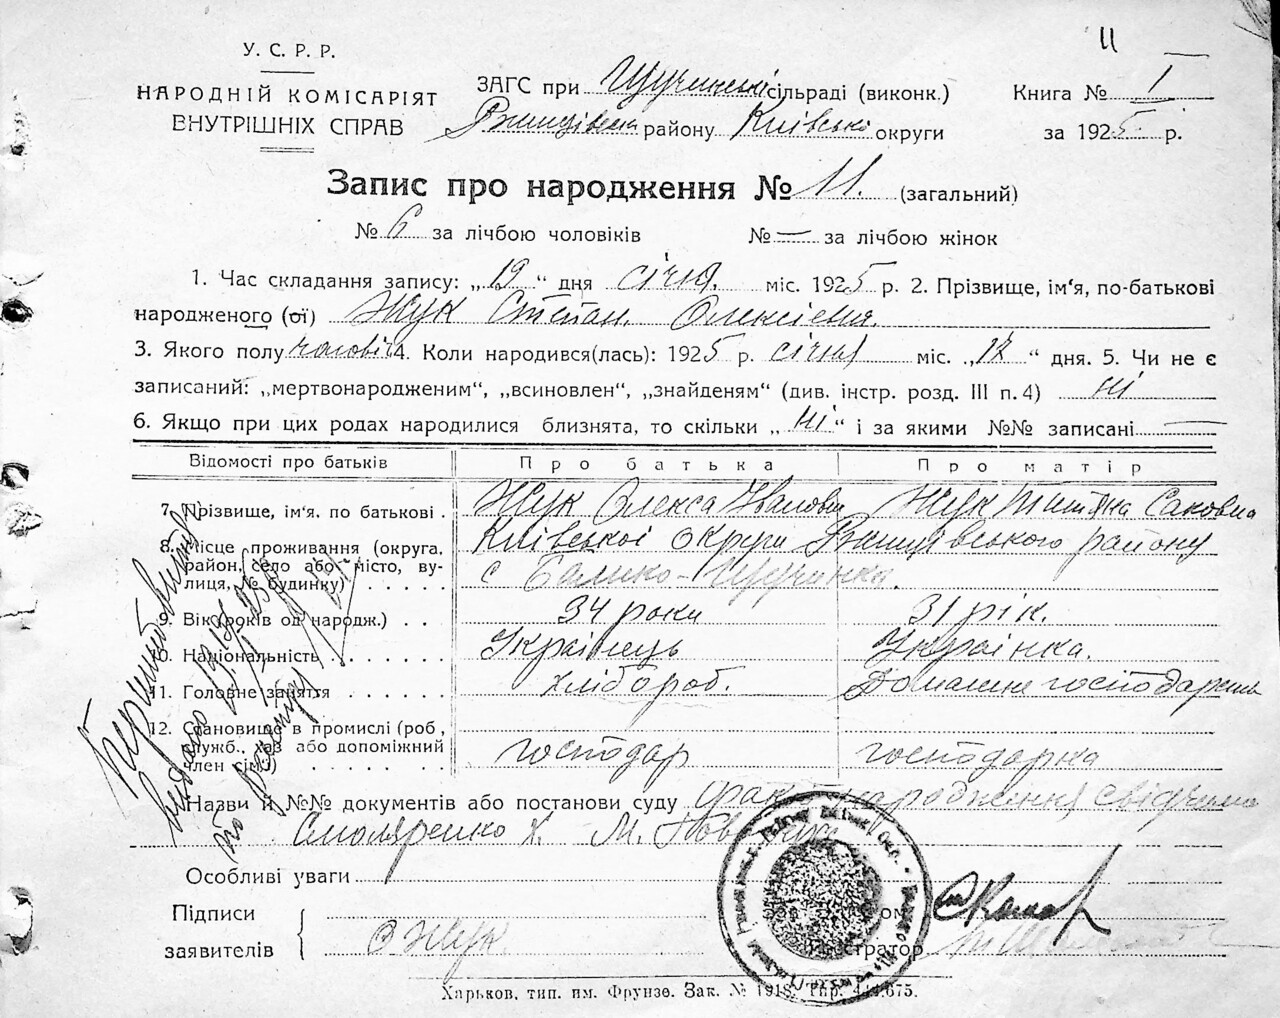 11
У. С. Р. Р.
НАРОДНІЙ КОМІСАРІЯТ
ВНУТРІШНІХ СПРАВ
ЗАГС при Щучинські сільраді (виконк.)
Ржищівськ району Київської округи
Книга № I
за 1925 р.
Запис про народження № 11. (загальний)
№ 6 за лічбою чоловіків № — за лічбою жінок
1. Час складання запису: „19“ дня січня. міс. 1925 р. 2. Прізвище, ім'я, по-батькові
народженого (ої) Жук Степан Олексієвич.
3. Якого полу чоловіч 4. Коли народився(лась): 1925 р. січня міс. „12“ дня. 5. Чи не є
записаний: „мертвонародженим“, „всиновлен“, „знайденям“ (див. інстр. розд. III п. 4) ні
6. Якщо при цих родах народилися близнята, то скільки „ні“ і за якими №№ записані —
Відомості про батьків Про батька Про матір
7. Прізвище, ім'я. по батькові . Жук Олекса Іванович Жук Титяна Саковна
8. Місце проживання (округа, Київської округи Ржищівського району
район, село або місто, ву-
лиця, № будинку) . . . . . с Балико-Щучинка.
9. Вік (років од народж.) . . 34 роки 31 рік.
10. Національність . . . . . . Українець Українка.
11. Головне заняття . . . . . хлібороб. Домашнє господарств
12. Становище в промислі (роб,
служб., хаз або допоміжний
член сім.) . . . . . . господар господарка
Назви й №№ документів або постанови суду факт народження свідчили
Смоляренко Х. М.
Особливі уваги
Підписи
заявителів О Жук.
стратор
Харьков, тип. им. Фрунзе. Зак. № 1918. Тир. 444.675.